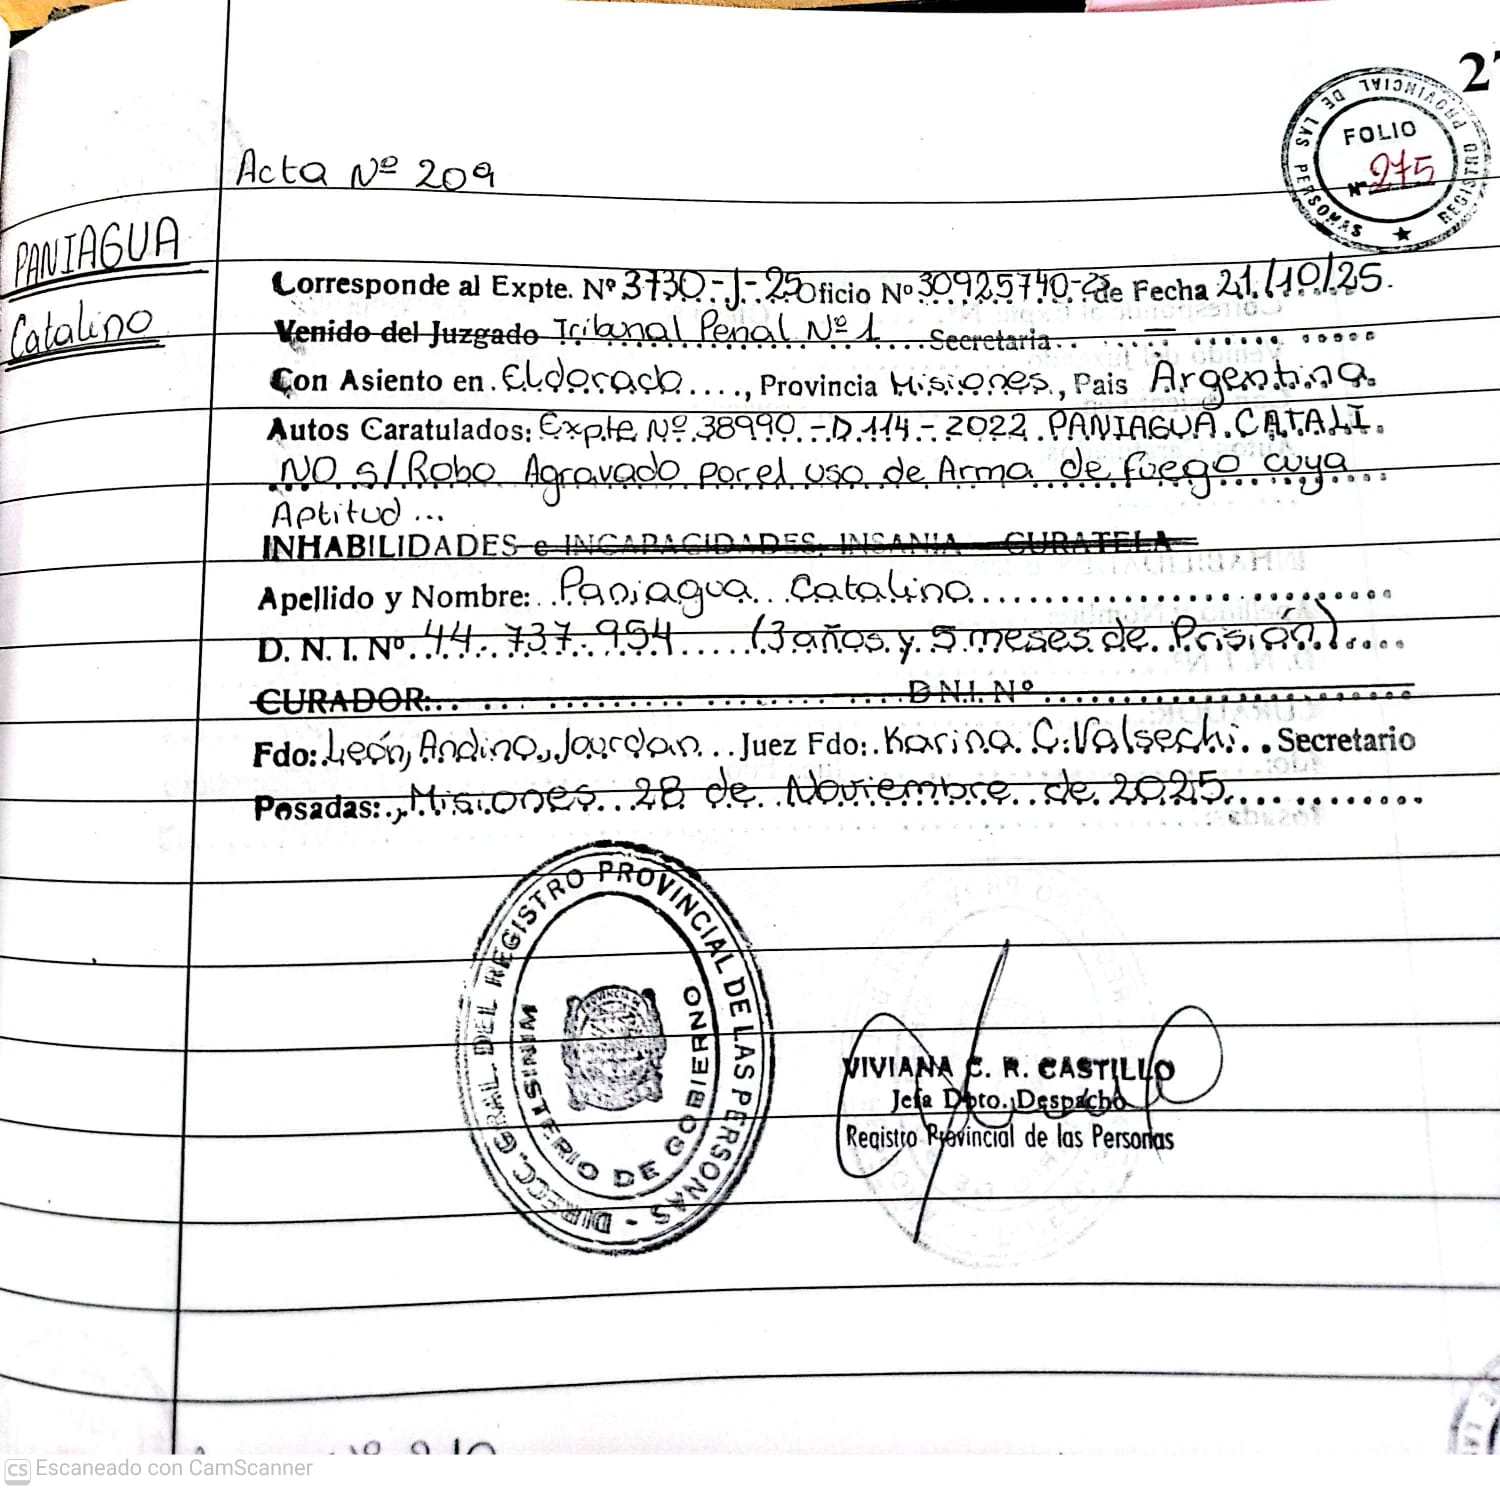 27
REGISTRO PROVINCIAL DE LAS PERSONAS
FOLIO
Nº 275
Acta Nº 209
PANIAGUA
Catalino
Corresponde al Expte. Nº 3730.-J-.25 Oficio Nº 30925740-25 de Fecha 21/10/25.
Venido del Juzgado Tribunal Penal Nº 1 .... Secretaria..
Con Asiento en. Eldorado...., Provincia Misiones., Pais Argentina.
Autos Caratulados: Expte Nº 38990.-D.114.-2022.PANIAGUA.CATALI.
NO s/Robo Agravado por el uso de Arma de fuego cuya
Aptitud ...
INHABILIDADES e INCAPACIDADES, INSANIA - CURATELA
Apellido y Nombre: Paniagua Catalino
D. N. I. Nº 44.737.954 (3 años y 5 meses de Prisión)
CURADOR: D.N.I. Nº
Fdo: León, Andino, Jourdan... Juez Fdo: Karina C. Valsechi.. Secretario
Posadas:., Misiones 28 de Noviembre de 2025
DIRECC. GRAL. DEL REGISTRO PROVINCIAL DE LAS PERSONAS -
MINISTERIO DE GOBIERNO
VIVIANA C. R. CASTILLO
Jefa Dpto. Despacho
Registro Provincial de las Personas
CS Escaneado con CamScanner